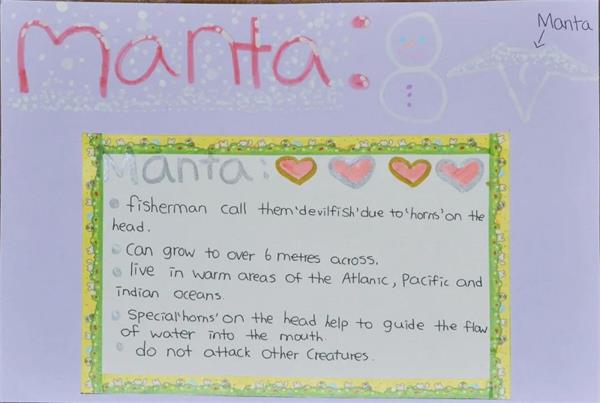 Manta:
Manta
Manta:
fisherman call them 'devilfish' due to 'horns' on the
head.
Can grow to over 6 metres across.
live in warm areas of the Atlanic, Pacific and
indian oceans.
special 'horns' on the head help to guide the flow
of water into the mouth.
do not attack other creatures.